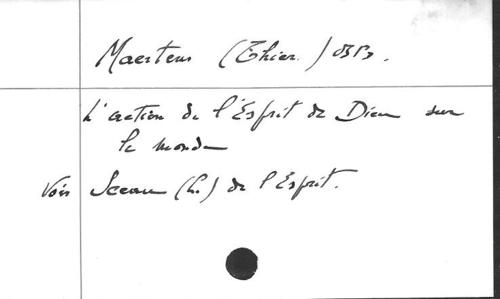 Maertens (Thier.) OSB.
L'action de l'Esprit de Dieu sur
le monde
Voir Sceau (Le) de l'Esprit.